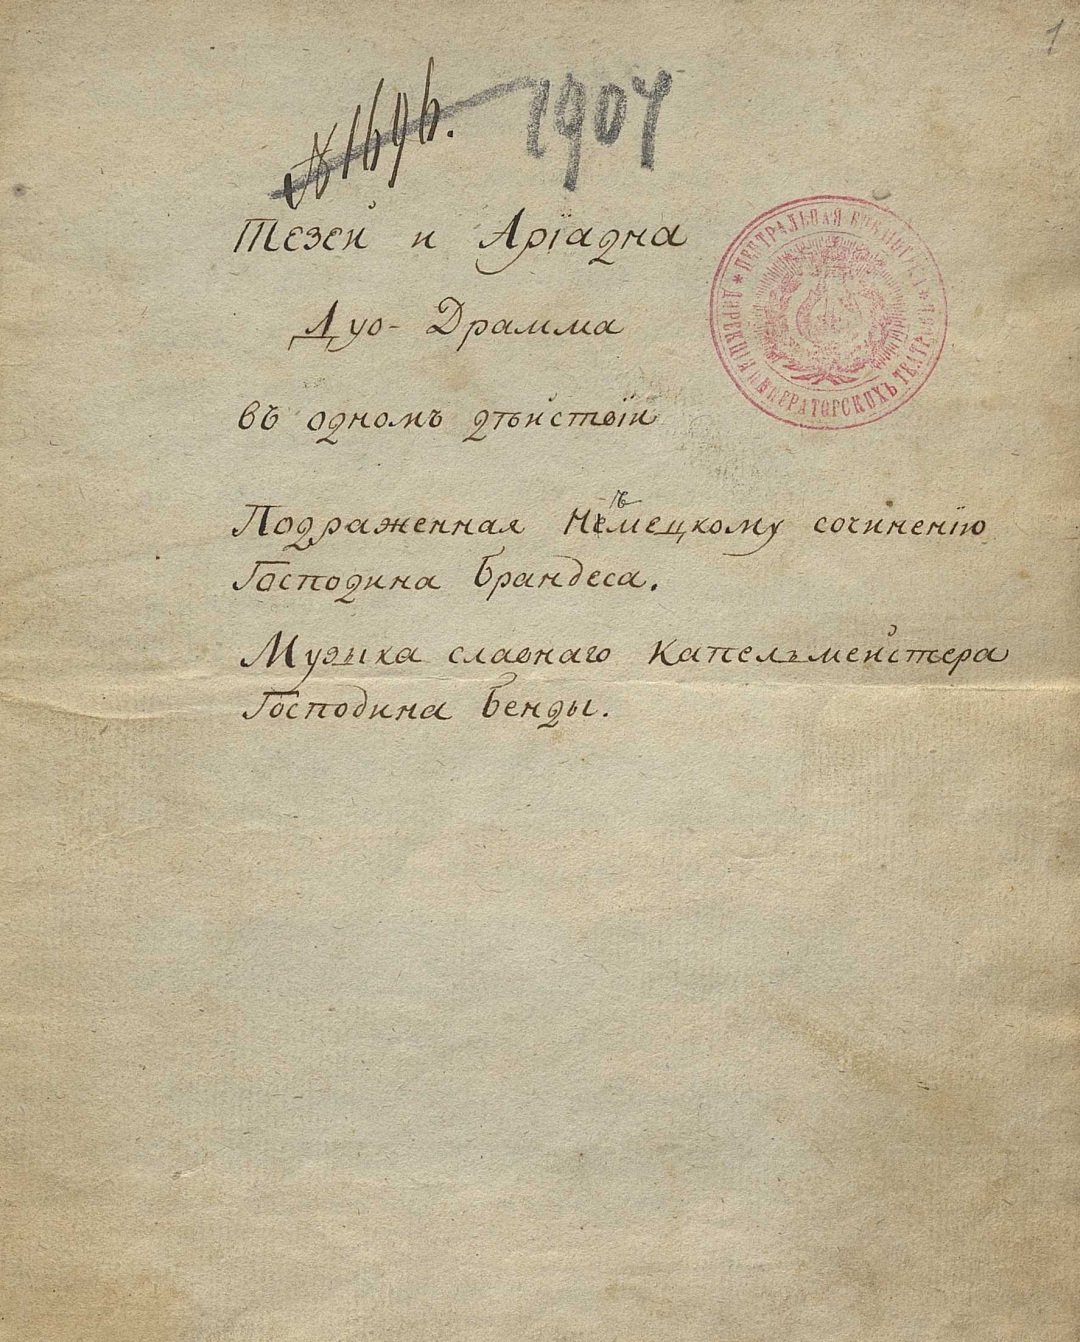 1
№ 1696. 1907
Тезей и Арїадна
Дуо-Драмма
въ одномъ дѣйствїи
Подраженная Нѣмецкому сочиненїю
Господина Брандеса.
Музыка славнаго Капельмейстера
Господина Бенды.
* ЦЕНТРАЛЬНАЯ БИБЛІОТЕКА *
ДИРЕКЦІИ ИМПЕРАТОРСКИХЪ ТЕАТРОВЪ